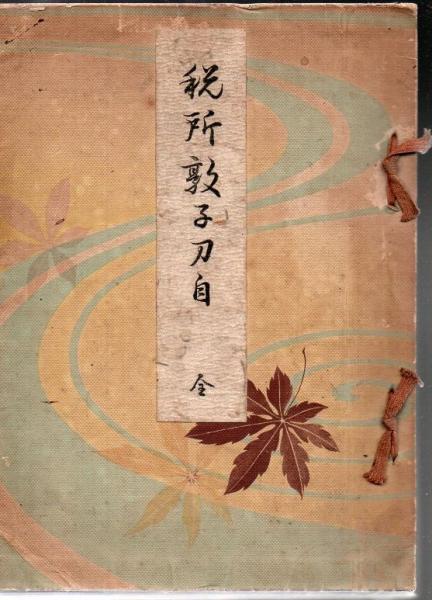 税所敦子刀自 全